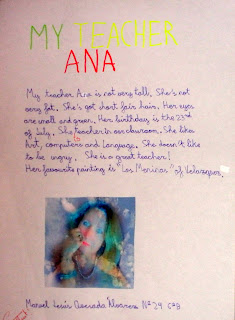 MY TEACHER
ANA
My teacher Ana is not very tall. She's not
very fat. She's got short fair hair. Her eyes
are small and green. Her birthday is the 23rd
of July. She teacher in our classroom. She likes
Art, computers and Language. She doesn't like
to be angry. She is a great teacher!
Her favourite painting is "Las Meninas" of Velazquez.
Manuel Jesús Quesada Álvarez Nº 24 6ºB